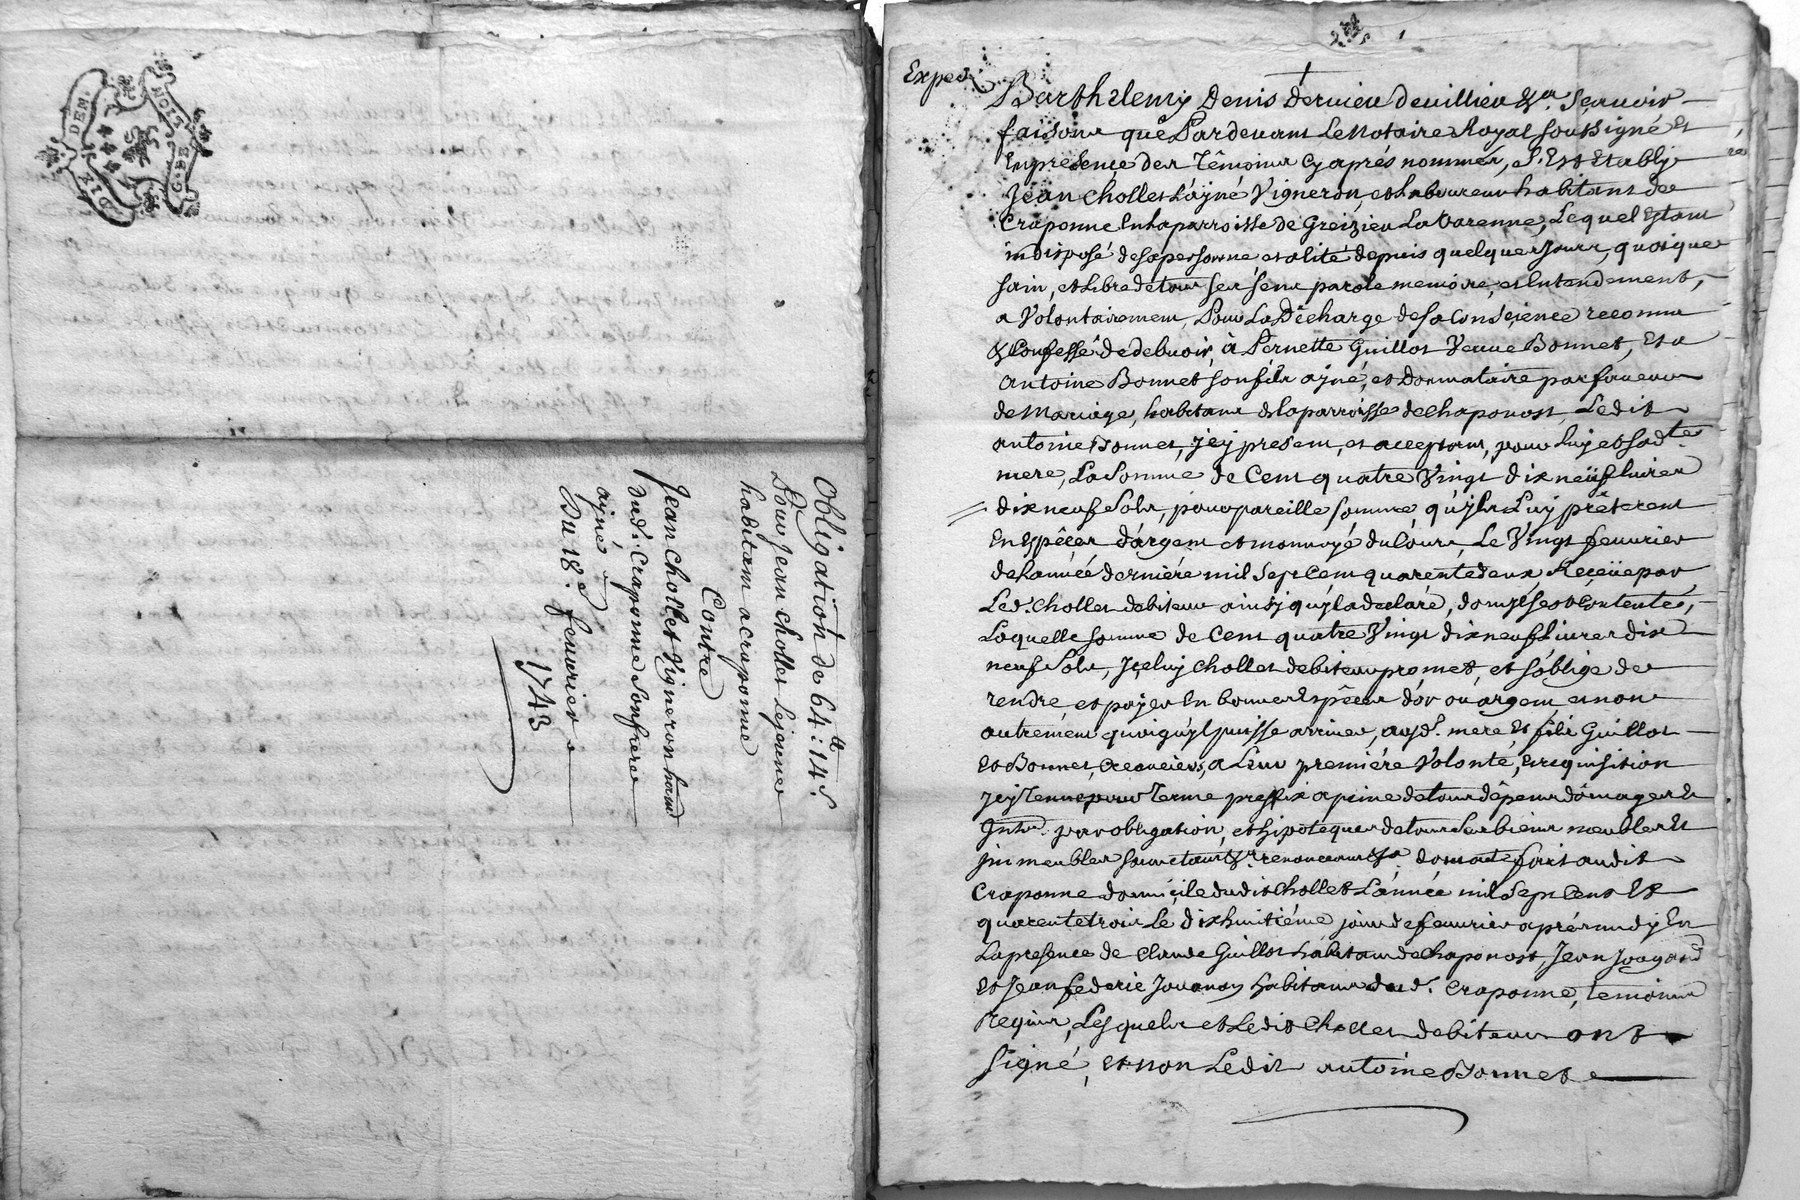 GEN. DE LION
DIX DEN.
Obligation de 64 ₶: 14 s.
Pour Jean chollet Lejeune
habitant a craponne
Contre
Jean chollet Vigneron habt
dud. Craponne Son frere
ayné
Du 18e. feuvrier
1743
Exped
Barthelemy Denis dervieu deuillieu &a. Sçauoir
faisons que Pardeuant Le Notaire Royal soussigné et
En presençe des Têmoins cy aprés nommés, s'Est Etably
Jean Chollet L'ayné Vigneron, et Laboureur habitant de
Craponne En La parroisse de Greizieu La Varenne, Lequel Estant
indisposé de sa personne et alité depuis quelques Jours, quoique
sain, et Libre de tous ses sens parole memoire, et Entendement,
a Volontairement, Pour La Décharge de sa Consçience reconnu
& Confessé de debuoir, à Pernette Guillot Veuue Bonnet, Et a
antoine Bonnet son fils ayné, et Donnataire par faueur
de Mariage, habitans de la parroisse de Chaponost, Ledit
antoine Bonnet, jcy present, et acceptant, pour Luy et sad.te
mere, La Somme de Cent quatre Vingt dix neuf Liures
dix neuf Sols, pour pareille somme qu'jls Luy prêterent
En Espêces d'argent et monnoyé du Cours, Le Vingt feuurier
de L'année derniére mil Sept Cent quarente deux Reçeüe par
Led. Chollet debiteur ainsy qu'jl a declaré, dont jl se Contente,
Laquelle somme de Cent quatre Vingt dix neuf Liures dix
neuf Sols, jceluy Chollet debiteur promet, et s'oblige de
rendre, et payer En bonnes Espêces d'or ou argent, et non
autrement quoiqu'jl puisse arriuer, ausd. mere Et fils Guillot
Et Bonnet, Creanciers, a Leur première Volonté, Et requisition
jcy Tenue pour Terme preffix a peine de tous dêpens domages Et
Jnts. par obligation, et hipoteques de tous ses biens meubles Et
jmmeubles soumettant &a. renonceant &a. dont acte fait audit
Craponne domicile dudit Chollet L'année mil Sept Cent Et
quarente trois Le dix huitiéme jour de feuurier aprés midy En
La presence de Claude Guillot habitant de Chaponost, Jean
Et Jean habitans dud. Craponne, temoins
Requis, Lesquels et Ledit Chollet debiteur ont
signé, et non Ledit antoine Bonnet